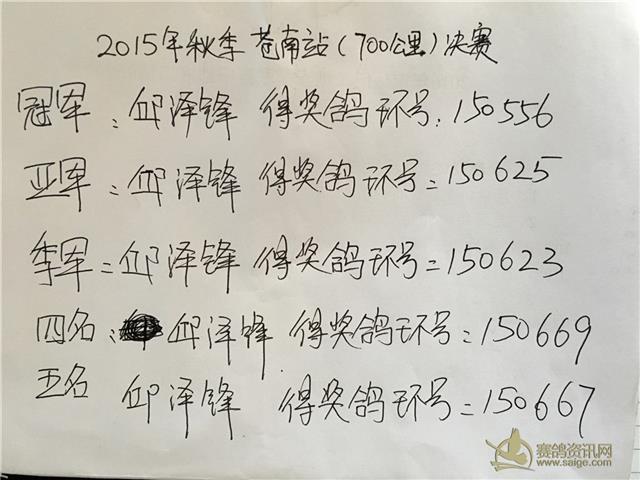 2015年秋季苍南站(700公里)决赛
冠军:邱泽锋 得奖鸽环号:150556
亚军:邱泽锋 得奖鸽环号:150625
季军:邱泽锋 得奖鸽环号:150623
四名:邱泽锋 得奖鸽环号:150669
五名 邱泽锋 得奖鸽环号:150667
赛鸽资讯网
www.saige.com